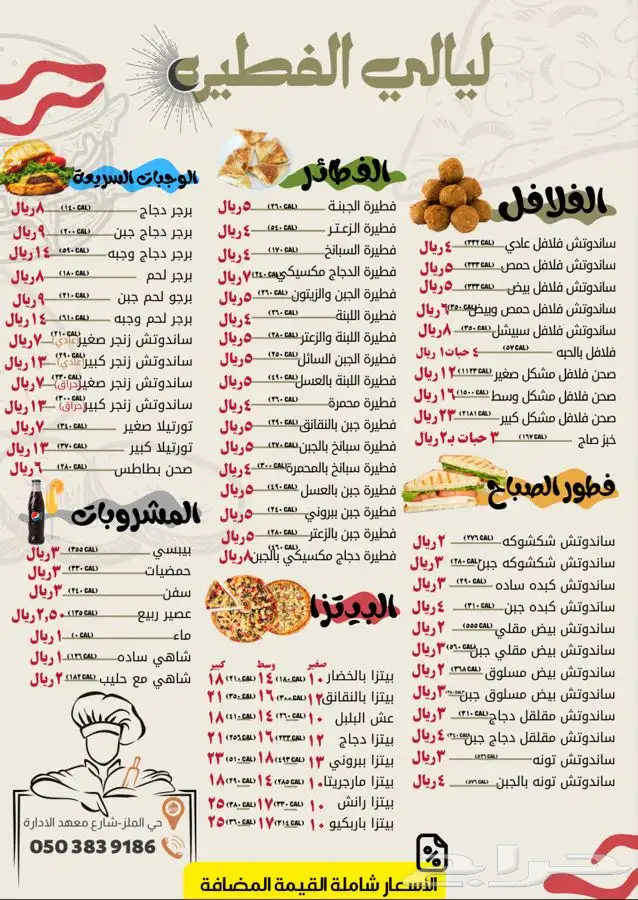 ليالي الفطيره
الفلافل
ساندوتش فلافل عادي (٣٣٣ CAL) ٤ ريال
ساندوتش فلافل حمص (٣٣٣ CAL) ٥ ريال
ساندوتش فلافل بيض (٣٣٣ CAL) ٥ ريال
ساندوتش فلافل حمص وبيض (٣٥٠ CAL) ٦ ريال
ساندوتش فلافل سبيشل (٣٥٠ CAL) ٨ ريال
فلافل بالحبه (٥٧ CAL) ٤ حبات ١ ريال
صحن فلافل مشكل صغير (١١٢٣ CAL) ١٢ ريال
صحن فلافل مشكل وسط (١٥٠٠ CAL) ١٦ ريال
صحن فلافل مشكل كبير (٢١٨١ CAL) ٢٣ ريال
خبز صاج (١٦٧ CAL) ٣ حبات بـ ٢ ريال
فطور الصباح
ساندوتش شكشوكه (٢٧٦ CAL) ٢ ريال
ساندوتش شكشوكه جبن (٢٨٠ CAL) ٣ ريال
ساندوتش كبده ساده (٢٩٠ CAL) ٣ ريال
ساندوتش كبده جبن (٣١٠ CAL) ٤ ريال
ساندوتش بيض مقلي (٥٥٥ CAL) ٢ ريال
ساندوتش بيض مقلي جبن (٥٦٠ CAL) ٣ ريال
ساندوتش بيض مسلوق (٣٦٨ CAL) ٢ ريال
ساندوتش بيض مسلوق جبن ٣ ريال
ساندوتش مقلقل دجاج (٣١٠ CAL) ٣ ريال
ساندوتش مقلقل دجاج جبن (٣٤٠ CAL) ٤ ريال
ساندوتش تونه (٥٢٦ CAL) ٣ ريال
ساندوتش تونه بالجبن (٥٧٦ CAL) ٤ ريال
الفطائر
فطيرة الجبنة (٢٦٠ CAL) ٥ ريال
فطيرة الزعتر (٥٤٠ CAL) ٤ ريال
فطيرة السبانخ (١٧٠ CAL) ٤ ريال
فطيرة الدجاج مكسيكي (٢٤٠ CAL) ٧ ريال
فطيرة الجبن والزيتون (٢٦٠ CAL) ٥ ريال
فطيرة اللبنة (٢٦٠ CAL) ٤ ريال
فطيرة اللبنة والزعتر (٢٨٠ CAL) ٥ ريال
فطيرة الجبن السائل (٢٥٠ CAL) ٥ ريال
فطيرة اللبنة بالعسل (٤٩٠ CAL) ٥ ريال
فطيرة محمرة (٢٦٠ CAL) ٤ ريال
فطيرة جبن بالنقانق (٢٩٠ CAL) ٥ ريال
فطيرة سبانخ بالجبن (٢٧٠ CAL) ٥ ريال
فطيرة سبانخ بالمحمرة (٣٠٠ CAL) ٤ ريال
فطيرة جبن بالعسل (٤٩٠ CAL) ٥ ريال
فطيرة جبن ببروني (٢٤٠ CAL) ٥ ريال
فطيرة جبن بالزعتر (٢٨٠ CAL) ٥ ريال
فطيرة دجاج مكسيكي بالجبن (٤٦٠ CAL) ٨ ريال
البيتزا
صغير وسط كبير
بيتزا بالخضار ١٠ (١٨٠ CAL) ١٤ (٢١٠ CAL) ١٨
بيتزا بالنقانق ١٢ (٣٠٠ CAL) ١٦ (٣٥٠ CAL) ٢١
عش البلبل ١٠ (٢٦٠ CAL) ١٤ (٤١٠ CAL) ١٨
بيتزا دجاج ١٢ (٢٣٣ CAL) ١٦ (٢٥٦ CAL) ٢١
بيتزا ببروني ١٣ (٤٩٣ CAL) ١٨ (٥١٠ CAL) ٢٣
بيتزا مارجريتا ١٠ (٢٨٥ CAL) ١٤ (٢٩٠ CAL) ١٨
بيتزا رانش ١٠ (٣٣٠ CAL) ١٧ (٣٨٠ CAL) ٢٥
بيتزا باربكيو ١٠ (٣١٤ CAL) ١٧ (٣٦٠ CAL) ٢٥
الوجبات السريعة
برجر دجاج (١٤٠ CAL) ٨ ريال
برجر دجاج جبن (٢٠٠ CAL) ٩ ريال
برجر دجاج وجبه (٥٩٠ CAL) ١٤ ريال
برجر لحم (١٨٠ CAL) ٨ ريال
برجو لحم جبن (٢١٠ CAL) ٩ ريال
برجر لحم وجبه (٦١٠ CAL) ١٤ ريال
ساندوتش زنجر صغير (عادي) (٢١٠ CAL) ٧ ريال
ساندوتش زنجر كبير (عادي) (٢٩٠ CAL) ١٣ ريال
ساندوتش زنجر صغير (حراق) (٢٣٠ CAL) ٧ ريال
ساندوتش زنجر كبير (حراق) (٣٠٠ CAL) ١٣ ريال
تورتيلا صغير (٣٤٠ CAL) ٧ ريال
تورتيلا كبير (٣٧٠ CAL) ١٣ ريال
صحن بطاطس (٢٨٠ CAL) ٦ ريال
المشروبات
بيبسي (٣٥٥ CAL) ٣ ريال
حمضيات (٣٣٠ CAL) ٣ ريال
سفن (٢٤٠ CAL) ٣ ريال
عصير ربيع (١٣٥ CAL) ٢,٥٠ ريال
ماء (٠ CAL) ١ ريال
شاهي ساده (١٢٦ CAL) ١ ريال
شاهي مع حليب (١٨٢ CAL) ٢ ريال
حي الملز-شارع معهد الادارة
050 383 9186
الأسعار شاملة القيمة المضافة
حراج